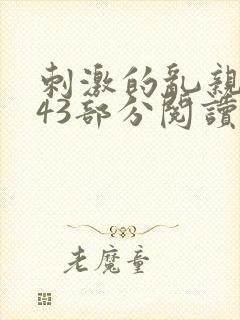 刺激的亂親
43部分閱讀
老魔童